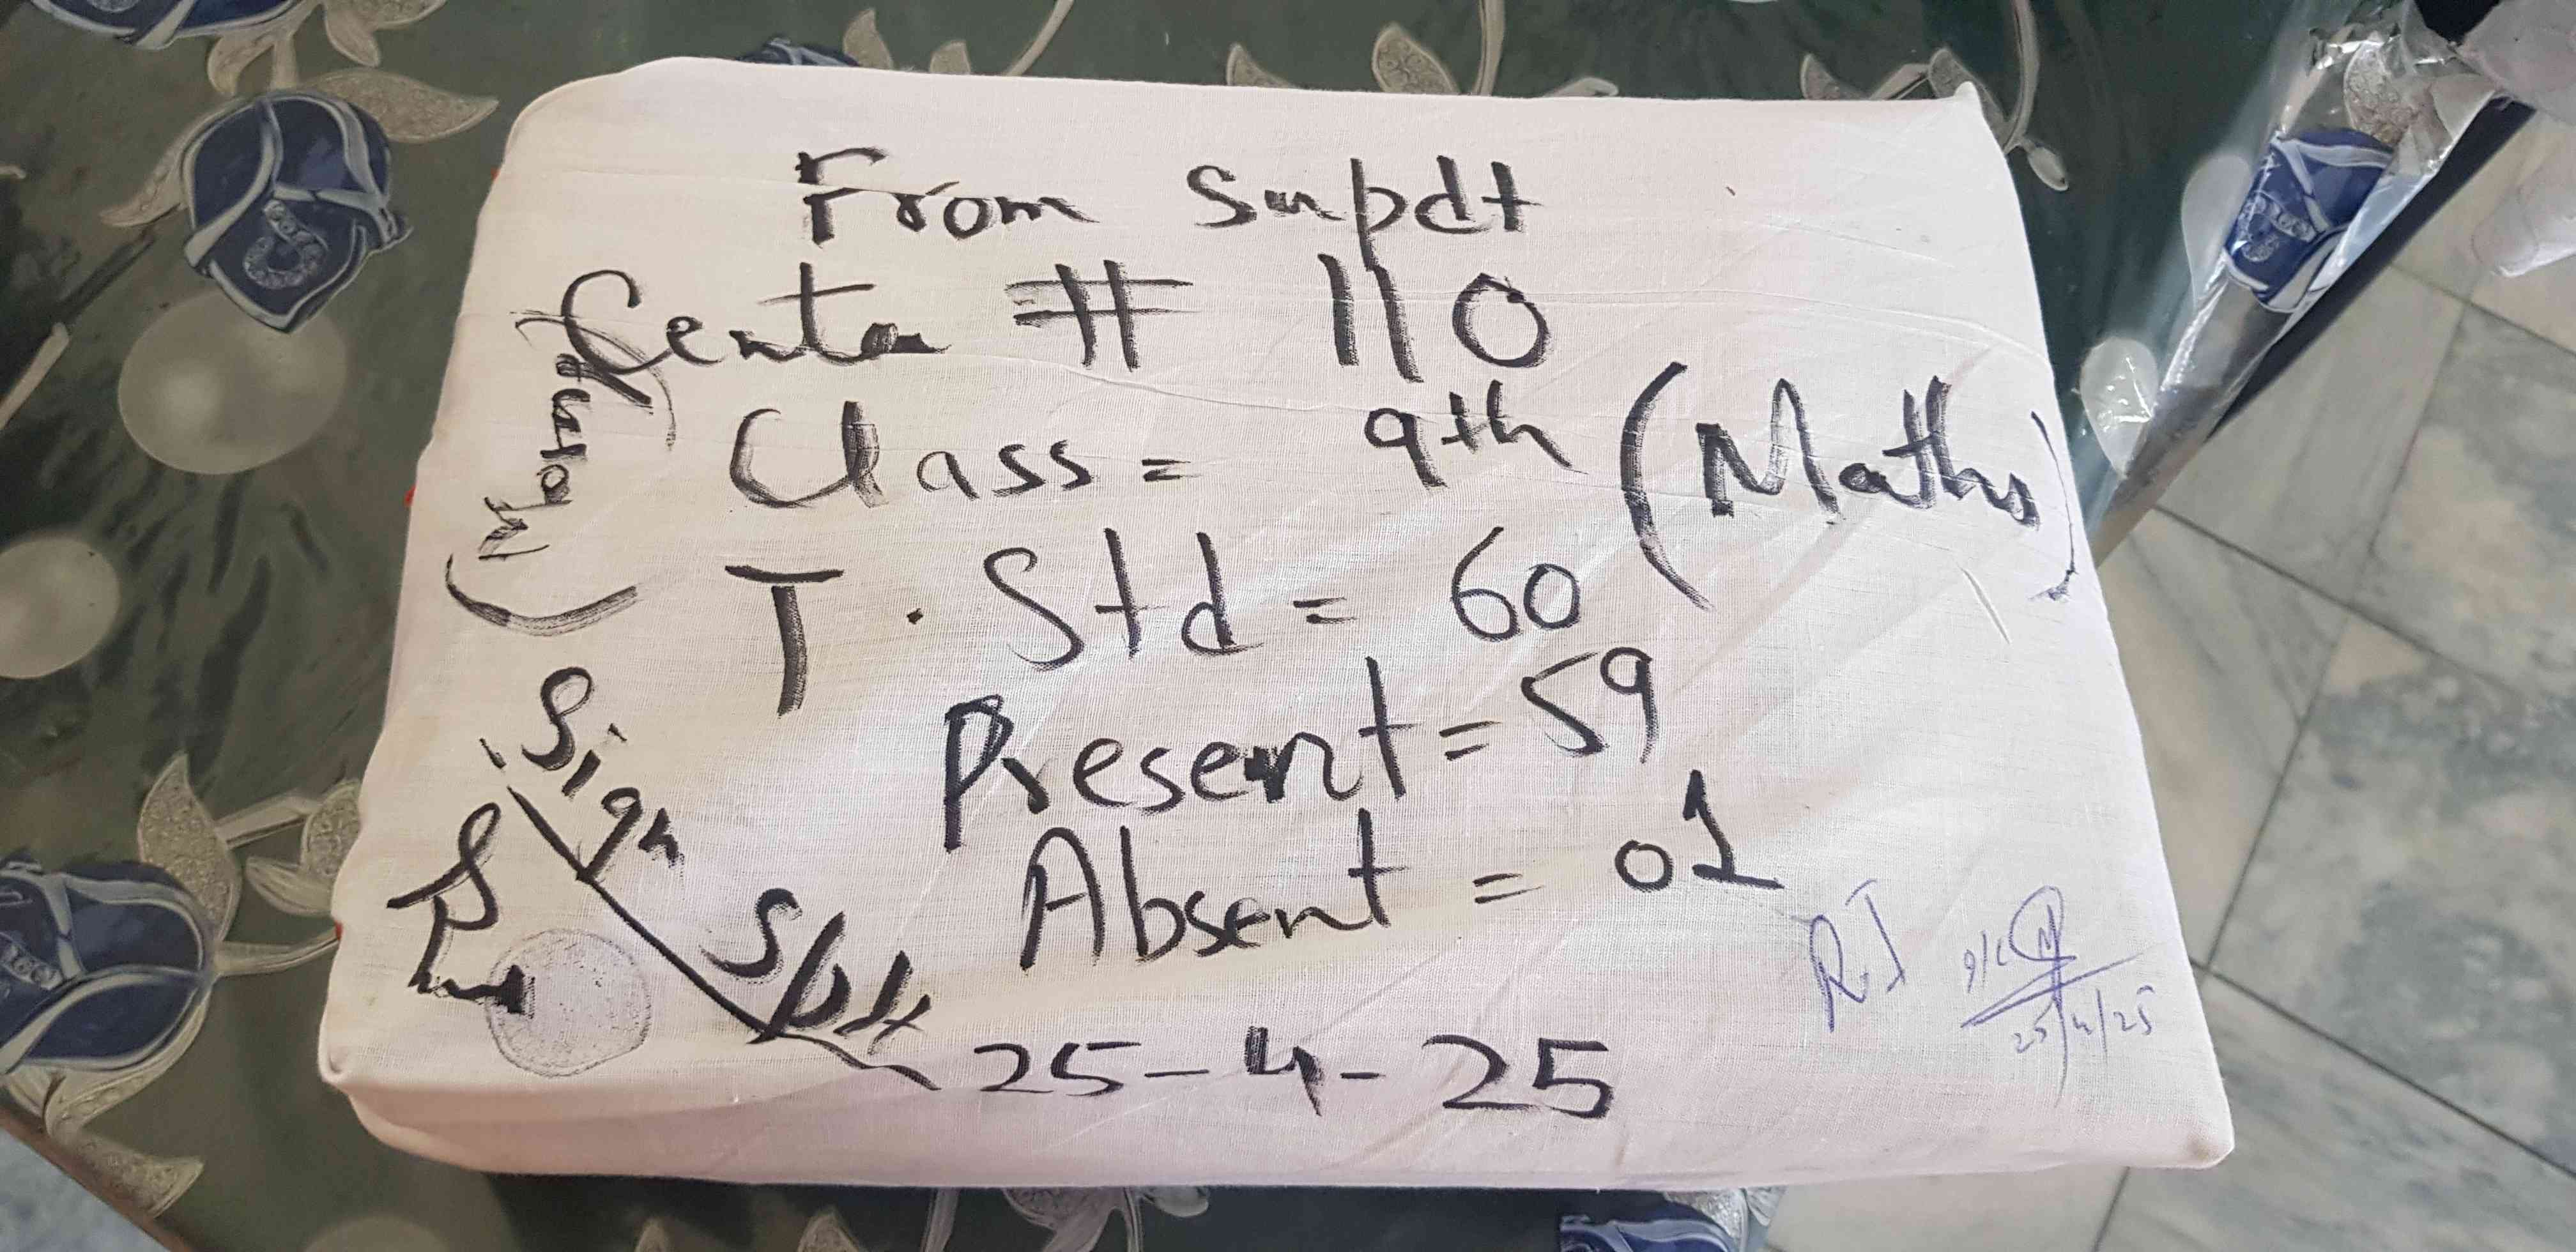 From Supdt
Center # 110
Class = 9th (Maths)
T. Std = 60
Present = 59
Absent = 01
Sign
Spdt
25-4-25
R.I
25/4/25